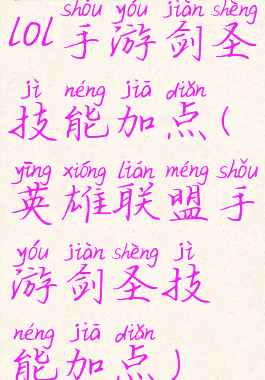 shǒu yóu jiàn shèng
lol手游剑圣
jì néng jiā diǎn
技能加点(
yīng xióng lián méng shǒu
英雄联盟手
yóu jiàn shèng jì
游剑圣技
néng jiā diǎn
能加点)